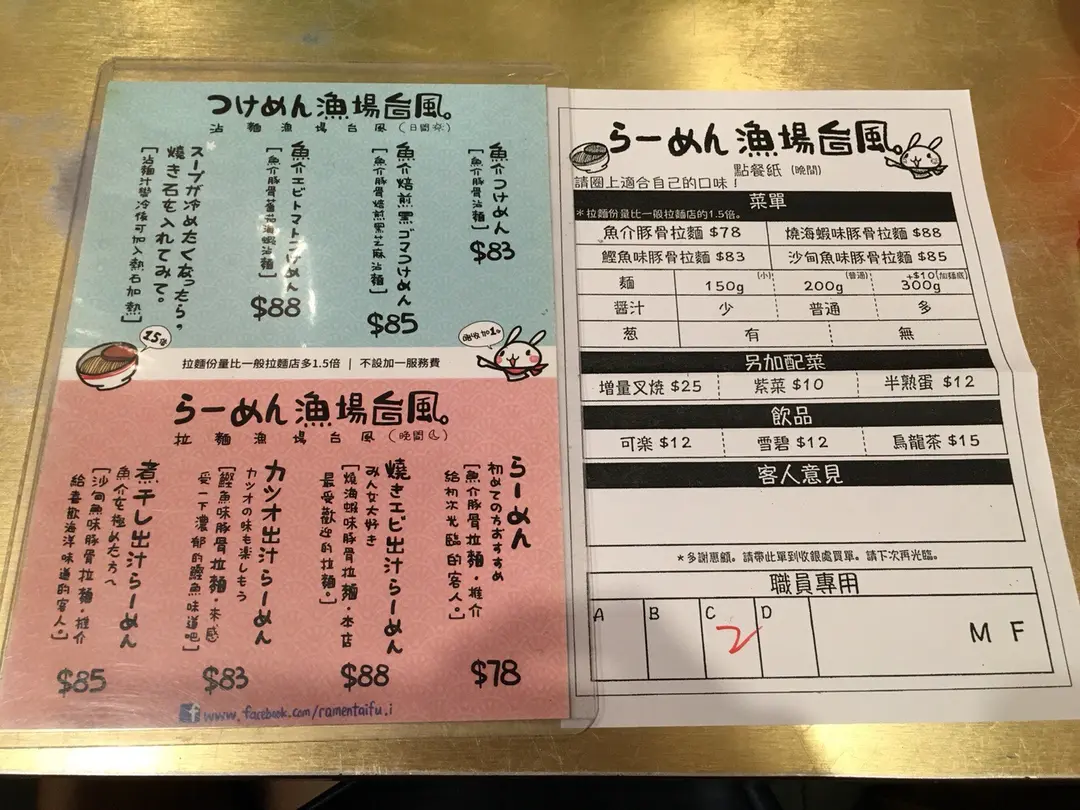 つけめん漁場台風。
沾麵漁場台風(日間)
魚介つけめん
[魚介豚骨沾麵]
$83
魚介焙煎黒ゴマつけめん
[魚介豚骨焙煎黑芝麻沾麵]
$85
魚介エビトマトつけめん
[魚介豚骨蕃茄海蝦沾麵]
$88
スープが冷めたくなったら,
燒き石を入れてみて。
[沾麵汁變冷後可加入熱石加熱]
1.5倍
拉麵份量比一般拉麵店多1.5倍 | 不設加一服務費
唔收加1
らーめん漁場台風。
拉麵漁場台風(晚間)
らーめん
初めての方おすすめ
[魚介豚骨拉麵・推介
給初次光臨的客人。]
$78
燒きエビ出汁らーめん
みんな大好き
[燒海蝦味豚骨拉麵・本店
最受歡迎的拉麵。]
$88
カツオ出汁らーめん
カツオの味も楽しもう
[鰹魚味豚骨拉麵・來感
受一下濃郁的鰹魚味道吧]
$83
煮干し出汁らーめん
魚介を極めた方へ
[沙甸魚味豚骨拉麵・推介
給喜歡海洋味道的客人。]
$85
www.facebook.com/ramentaifu.i
らーめん漁場台風。
點餐紙 (晚間)
請圈上適合自己的口味!
菜單
*拉麵份量比一般拉麵店的1.5倍。
魚介豚骨拉麵 $78 燒海蝦味豚骨拉麵 $88
鰹魚味豚骨拉麵 $83 沙甸魚味豚骨拉麵 $85
麵 150g (小) 200g (普通) 300g +$10(加麵底)
醬汁 少 普通 多
葱 有 無
另加配菜
增量叉燒 $25 紫菜 $10 半熟蛋 $12
飲品
可樂 $12 雪碧 $12 烏龍茶 $15
客人意見
*多謝惠顧。請帶此單到收銀處買單。請下次再光臨。
職員專用
A B C D
2
M F